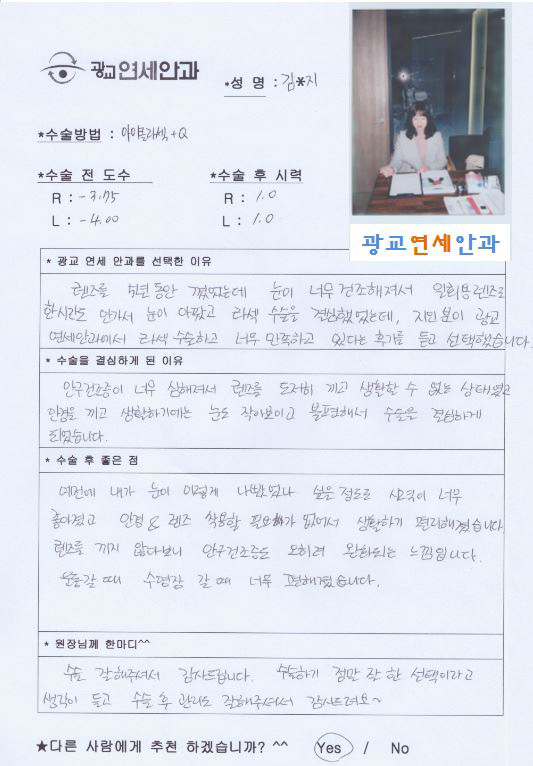 광교연세안과
*성 명 : 김*지
*수술방법 : 아이블라섹+Q
*수술 전 도수
*수술 후 시력
R : -3.75
R : 1.0
L : -4.00
L : 1.0
광교연세안과
* 광교 연세 안과를 선택한 이유
렌즈를 5년동안 꼈었는데 눈이 너무 건조해져서 원회용렌즈도
한시간도 안가서 눈이 아팠고 라섹 수술을 결심했었는데, 지인분이 광교
연세안과에서 라섹 수술하고 너무 만족하고 있다는 후기를 듣고 선택했습니다.
* 수술을 결심하게 된 이유
안구건조증이 너무 심해져서 렌즈를 도저히 끼고 생활할 수 없는 상태였고
안경을 끼고 생활하기에는 눈도 작아보이고 불편해서 수술을 결심하게
되었습니다.
* 수술 후 좋은 점
예전에 내가 눈이 이렇게 나빴었나 싶을 정도로 시력이 너무
좋아졌고 안경 & 렌즈 착용할 필요가 없어서 생활하기 편리해졌습니다
렌즈를 끼지 않다보니 안구건조증도 오히려 완화되는 느낌입니다.
운동갈때 수영장 갈 때 너무 편해졌습니다.
* 원장님께 한마디^^
수술 잘해주셔서 감사드립니다. 수술하기 정말 잘 한 선택이라고
생각이 들고 수술 후 관리도 잘해주셔서 감사드려요~
★다른 사람에게 추천 하겠습니까? ^^ Yes / No